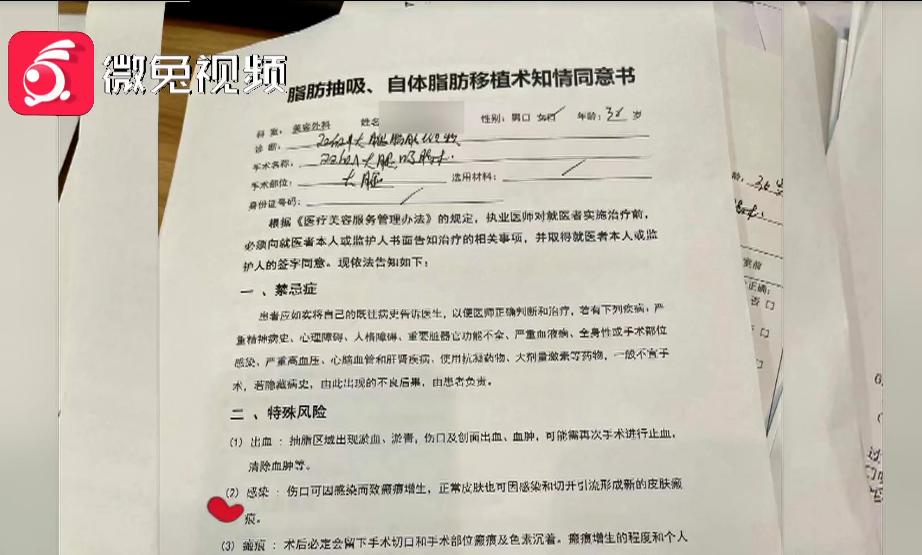 微兔视频
脂肪抽吸、自体脂肪移植术知情同意书
科室：美容外科 姓名 性别：男口 女口 年龄：32 岁
诊断：双侧大腿脂肪
手术名称：双侧大腿吸脂术.
手术部位：大腿 选用材料：
身份证号码：
根据《医疗美容服务管理办法》的规定，执业医师对就医者实施治疗前，
必须向就医者本人或监护人书面告知治疗的相关事项，并取得就医者本人或监
护人的签字同意。现依法告知如下：
一、禁忌症
患者应如实将自己的既往病史告诉医生，以便医师正确判断和治疗，若有下列疾病，严
重精神病史、心理障碍、人格障碍、重要脏器官功能不全、严重血液病、全身性或手术部位
感染、严重高血压、心脑血管和肝肾疾病，使用抗凝药物、大剂量激素等药物，一般不宜手
术，若隐瞒病史，由此出现的不良后果，由患者负责。
二、特殊风险
(1) 出血：抽脂区域出现淤血、淤青，伤口及创面出血、血肿，可能需再次手术进行止血，
清除血肿等。
(2) 感染：伤口可因感染而致瘢痕增生，正常皮肤也可因感染和切开引流形成新的皮肤瘢
痕。
(3) 瘢痕：术后必定会留下手术切口和手术部位瘢痕及色素沉着。瘢痕增生的程度和个人